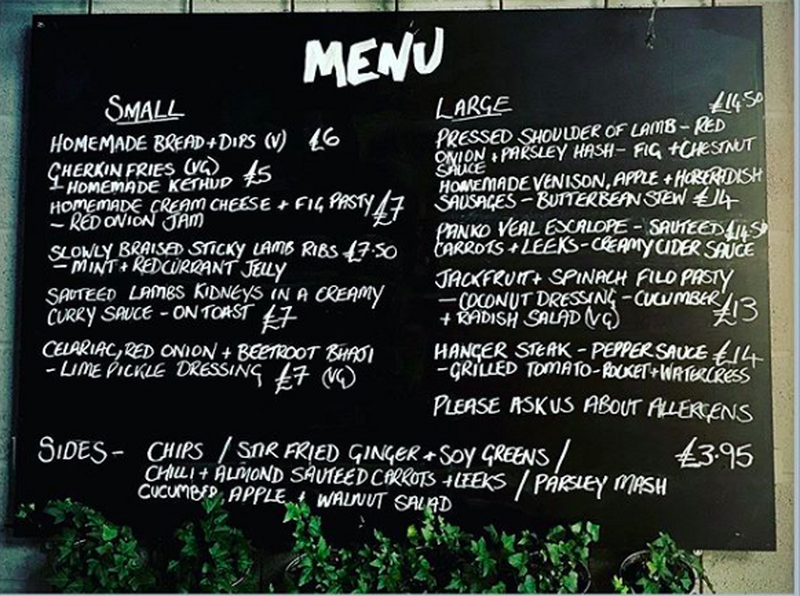 MENU
SMALL
HOMEMADE BREAD + DIPS (V) £6
GHERKIN FRIES (VG) £5
+ HOMEMADE KETHUP
HOMEMADE CREAM CHEESE + FIG PASTY £7
- RED ONION JAM
SLOWLY BRAISED STICKY LAMB RIBS £7.50
- MINT + REDCURRANT JELLY
SAUTEED LAMBS KIDNEYS IN A CREAMY
CURRY SAUCE - ON TOAST £7
CELARIAC, RED ONION + BEETROOT BHAJI
- LIME PICKLE DRESSING £7 (VG)
LARGE £14.50
PRESSED SHOULDER OF LAMB - RED
ONION + PARSLEY HASH - FIG + CHESTNUT
SAUCE
HOMEMADE VENISON, APPLE + HORERADISH
SAUSAGES - BUTTERBEAN STEW £14
PANKO VEAL ESCALOPE - SAUTEED £14.50
CARROTS + LEEKS - CREAMY CIDER SAUCE
JACKFRUIT + SPINACH FILO PASTY
- COCONUT DRESSING - CUCUMBER £13
+ RADISH SALAD (VG)
HANGER STEAK - PEPPER SAUCE £14
- GRILLED TOMATO - ROCKET + WATERCRESS
PLEASE ASK US ABOUT ALLERGENS
SIDES - CHIPS / STIR FRIED GINGER + SOY GREENS / £3.95
CHILLI + ALMOND SAUTEED CARROTS + LEEKS / PARSLEY MASH
CUCUMBER, APPLE + WALNUT SALAD